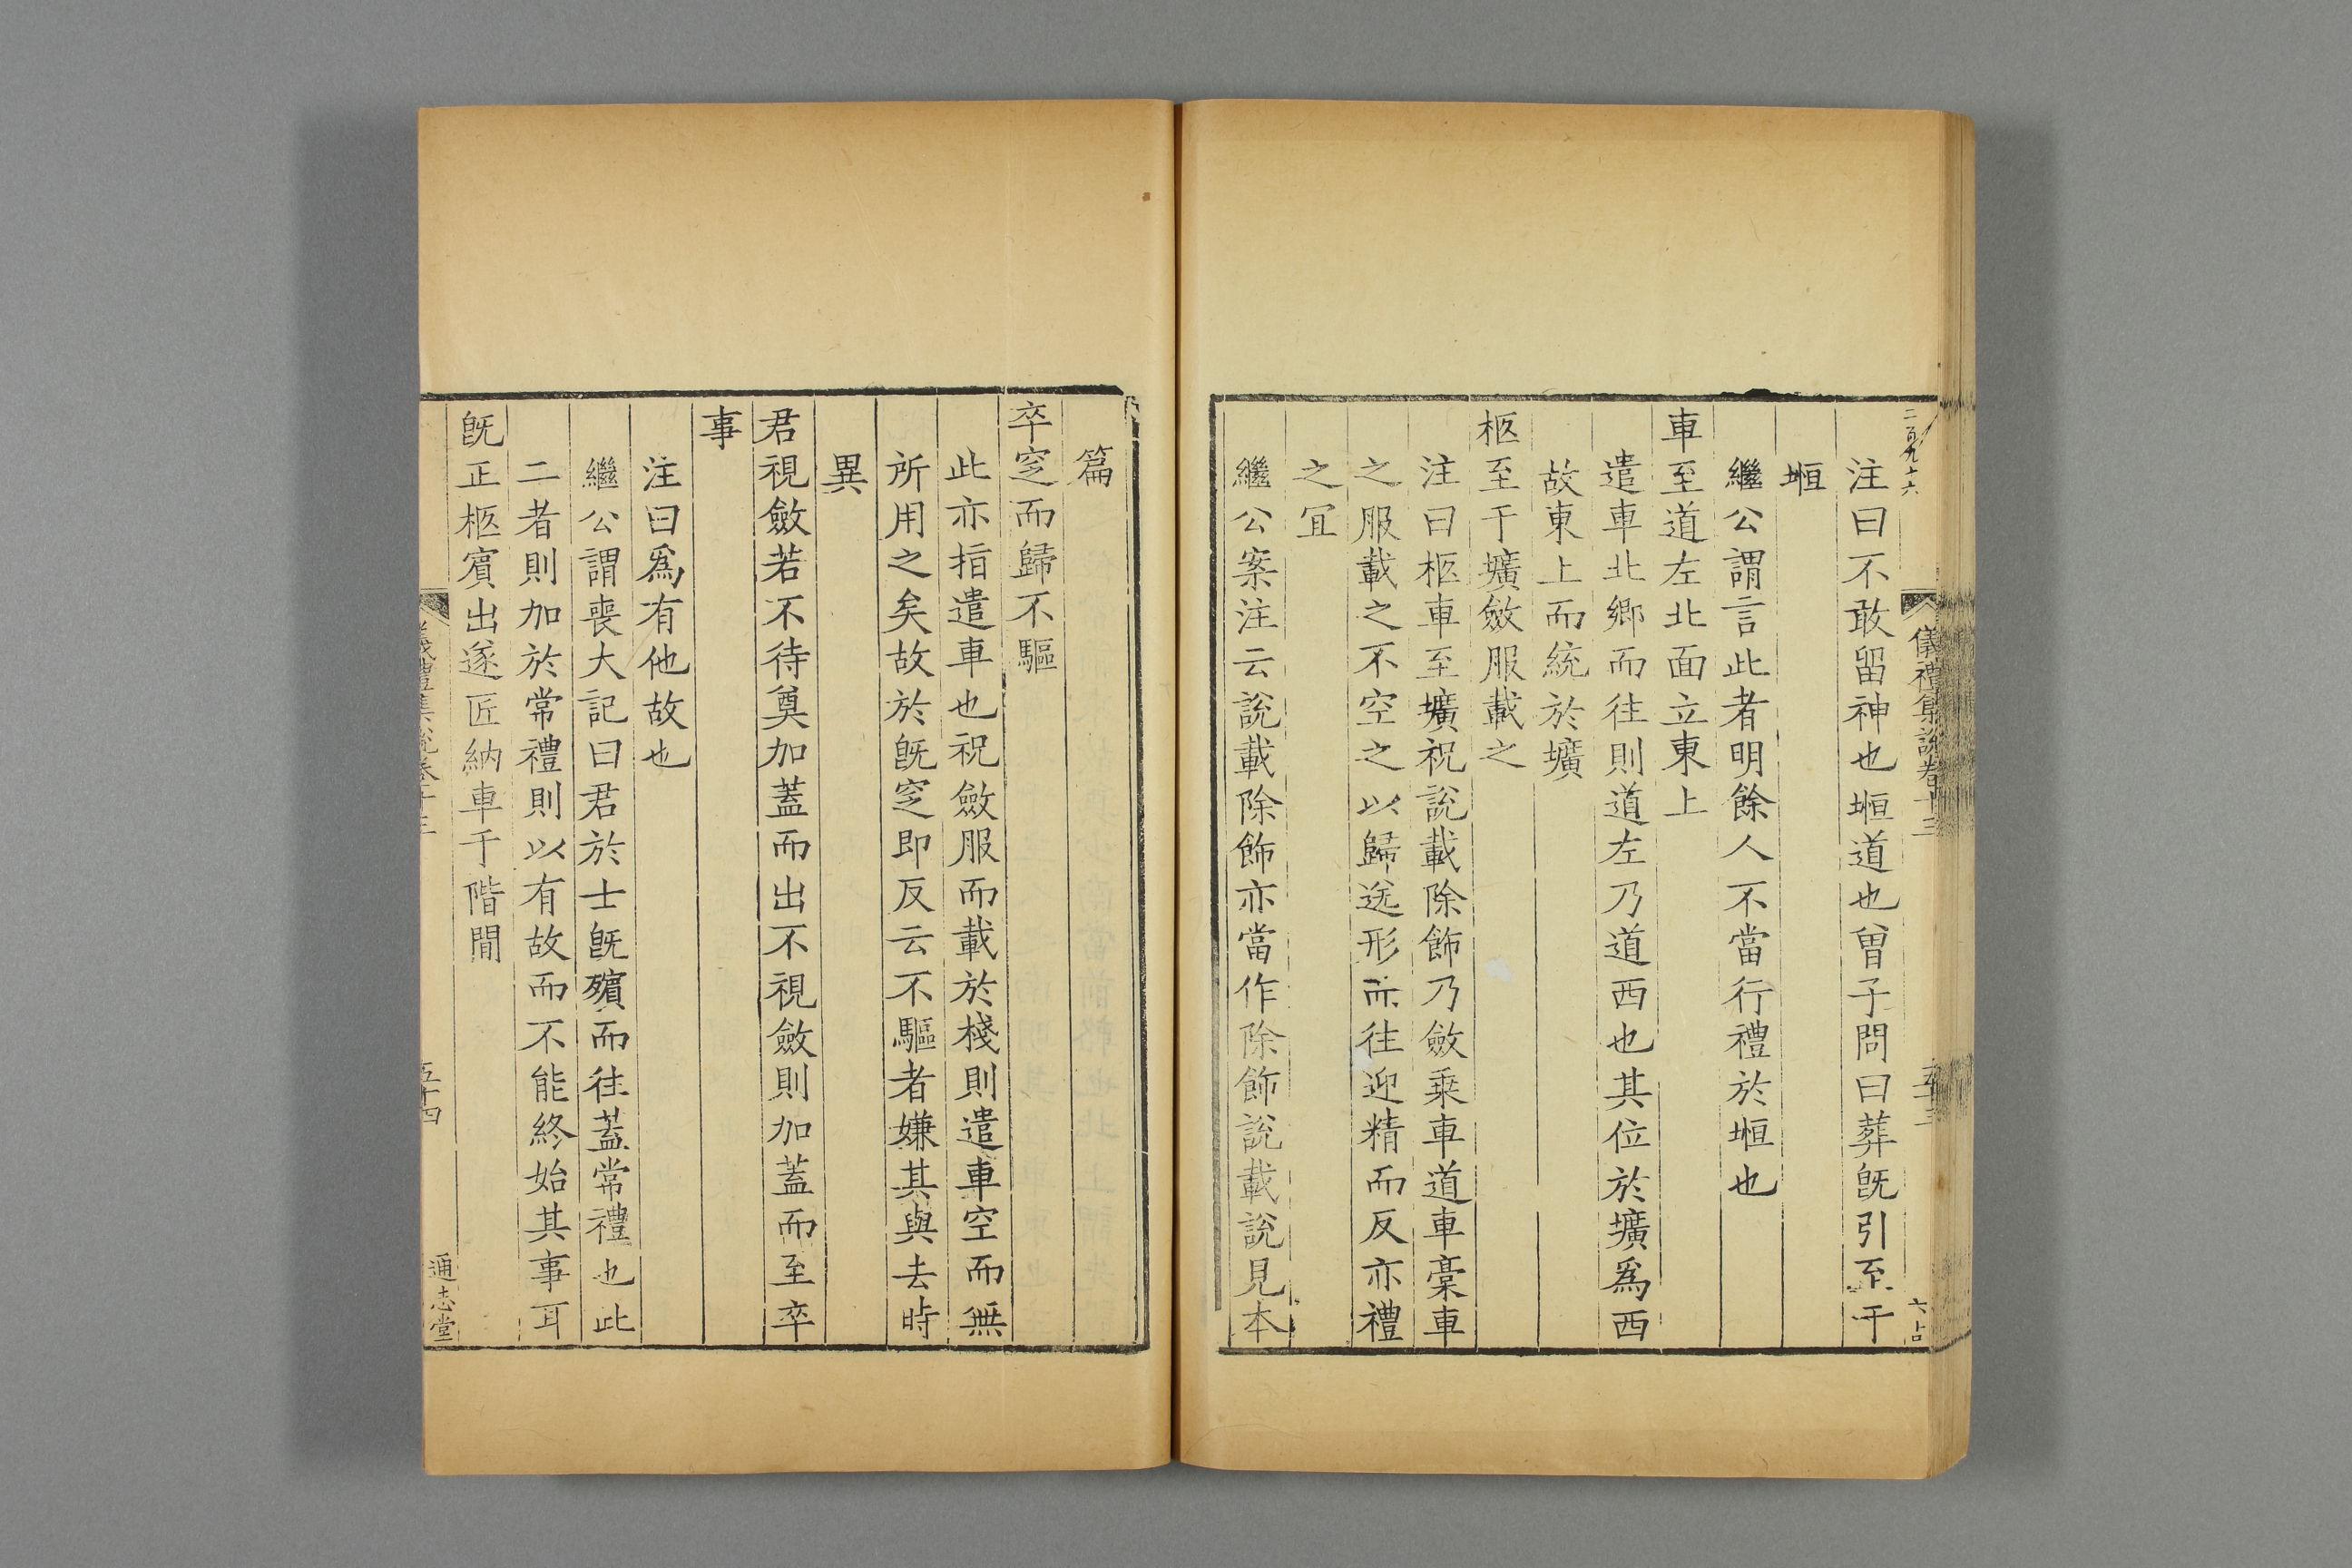 二百九十六
儀禮集說卷十三
五十三
注曰不敢留神也堩道也曾子問曰葬旣引至于
堩
繼公謂言此者明餘人不當行禮於堩也
車至道左北面立東上
遣車北鄉而往則道左乃道西也其位於壙爲西
故東上而統於壙
柩至于壙斂服載之
注曰柩車至壙祝說載除飾乃斂乗車道車槀車
之服載之不空之以歸送形而往迎精而反亦禮
之冝
繼公案注云說載除飾亦當作除飾說載說見本
篇
卒窆而歸不驅
此亦指遣車也祝斂服而載於棧則遣車空而無
所用之矣故於旣窆即反云不驅者嫌其與去時
異
君視斂若不待奠加蓋而出不視斂則加蓋而至卒
事
注曰爲有他故也
繼公謂喪大記曰君於士旣殯而往蓋常禮也此
二者則加於常禮則以有故而不能終始其事耳
旣正柩賔出遂匠納車于階間
儀禮集說卷十三
五十四
通志堂